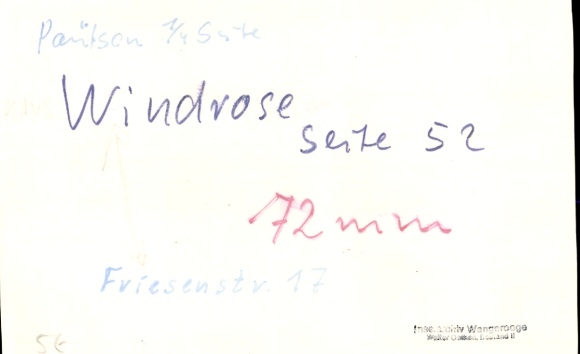 1/4 Seite
Windrose
Seite 52
72 mm
Friesenstr. 17
5€
Inselarchiv Wangerooge